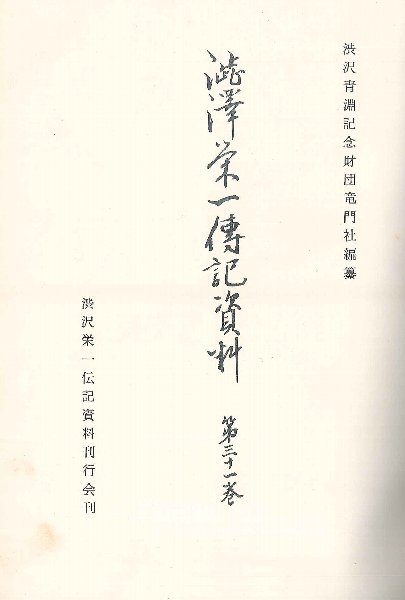 渋沢青淵記念財団竜門社編纂
澁澤栄一傳記資料 第三十一巻
渋沢栄一伝記資料刊行会刊